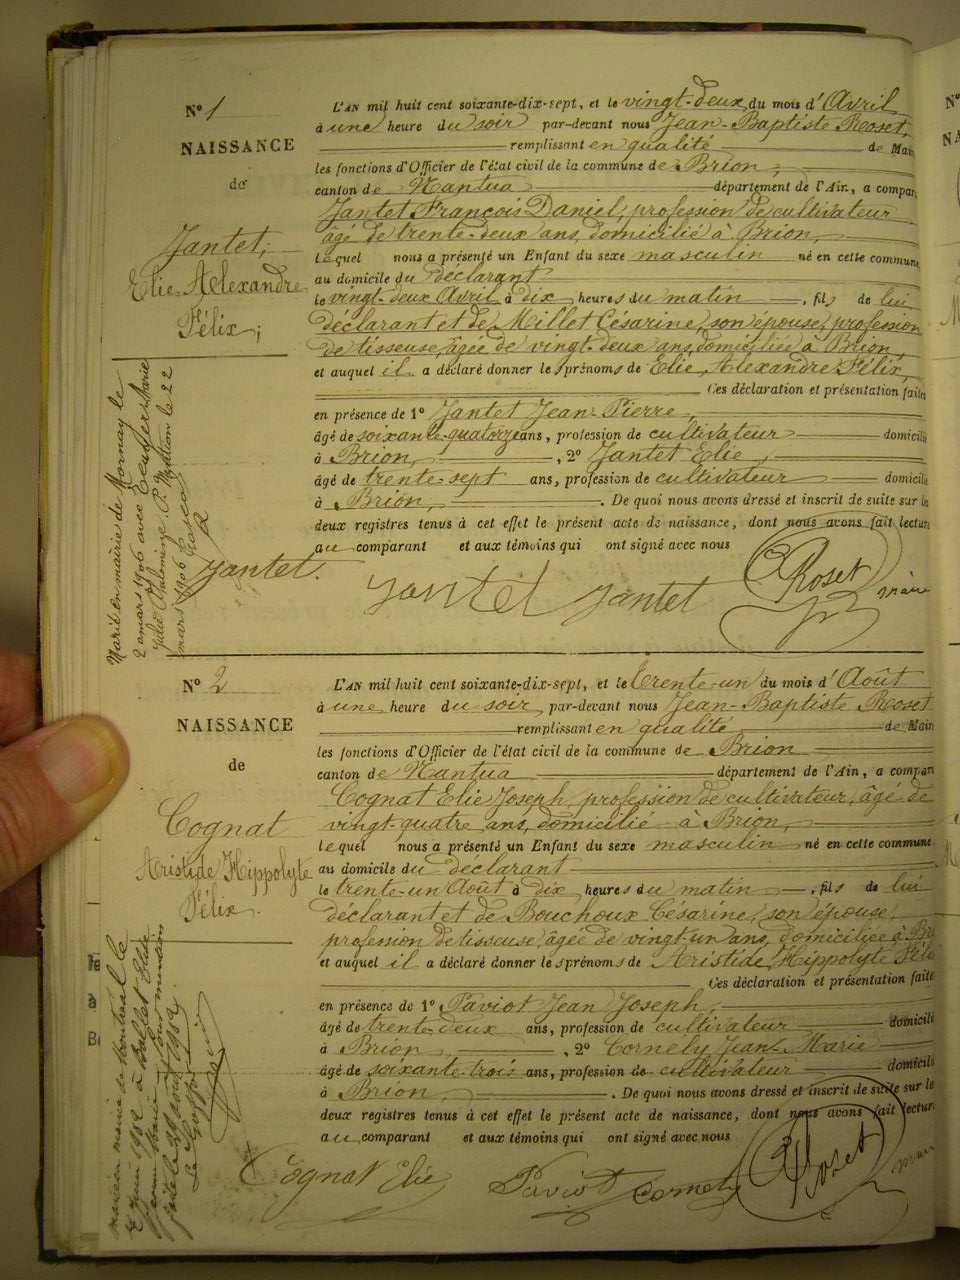 N° 1
NAISSANCE
de
Jantet,
Elie Alexandre
Félix,
L'AN mil huit cent soixante-dix-sept, et le vingt-deux du mois d'Avril
à une heure du soir par-devant nous Jean-Baptiste Roset,
remplissant en qualité de Mair
les fonctions d'Officier de l'état civil de la commune de Brion,
canton de Nantua département de l'Ain, a compar
Jantet François Daniel, profession de cultivateur
âgé de trente-deux ans, domicilié à Brion,
lequel nous a présenté un Enfant du sexe masculin né en cette commune
au domicile du déclarant
le vingt-deux Avril à dix heures du matin, fils de lui
déclarant et de Millet Césarine, son épouse, profession
de tisseuse, âgée de vingt-deux ans, domiciliée à Brion,
et auquel il a déclaré donner les prénoms de Elie, Alexandre Félix,
Ces déclaration et présentation faites
en présence de 1° Jantet Jean-Pierre,
âgé de soixante-quatorze ans, profession de cultivateur domicilié
à Brion, , 2° Jantet Elie,
âgé de trente-sept ans, profession de cultivateur domicilié
à Brion, . De quoi nous avons dressé et inscrit de suite sur les
deux registres tenus à cet effet le présent acte de naissance, dont nous avons fait lecture
au comparant et aux témoins qui ont signé avec nous
Jantet. Jantet Jantet Roset maire
Marié en mairie de Mornay le
2 mars 1906 avec Marie
Julie Philomène P. Mention le 22
mars 1906
N° 2
NAISSANCE
de
Cognat
Aristide Hippolyte
Félix.
L'AN mil huit cent soixante-dix-sept, et le trente-un du mois d'Août
à une heure du soir, par-devant nous Jean-Baptiste Roset
remplissant en qualité de Mair
les fonctions d'Officier de l'état civil de la commune de Brion
canton de Nantua département de l'Ain, a compar
Cognat Elie Joseph, profession de cultivateur, âgé de
vingt-quatre ans, domicilié à Brion,
lequel nous a présenté un Enfant du sexe masculin né en cette commune
au domicile du déclarant
le trente-un Août à dix heures du matin, fils de lui
déclarant et de Bouchoux Césarine, son épouse,
profession de tisseuse, âgée de vingt-un ans, domiciliée à Bri
et auquel il a déclaré donner les prénoms de Aristide, Hippolyte Féli
Ces déclaration et présentation faite
en présence de 1° Paviot Jean Joseph,
âgé de trente-deux ans, profession de cultivateur domicilié
à Brion , 2° Cornely Jean-Marie
âgé de soixante-trois ans, profession de cultivateur domicilié
à Brion . De quoi nous avons dressé et inscrit de suite sur le
deux registres tenus à cet effet le présent acte de naissance, dont nous avons fait lecture
au comparant et aux témoins qui ont signé avec nous
Cognat Elie Paviot Roset maire
mairie de Montréal le
Elie
mention
Le Greffier